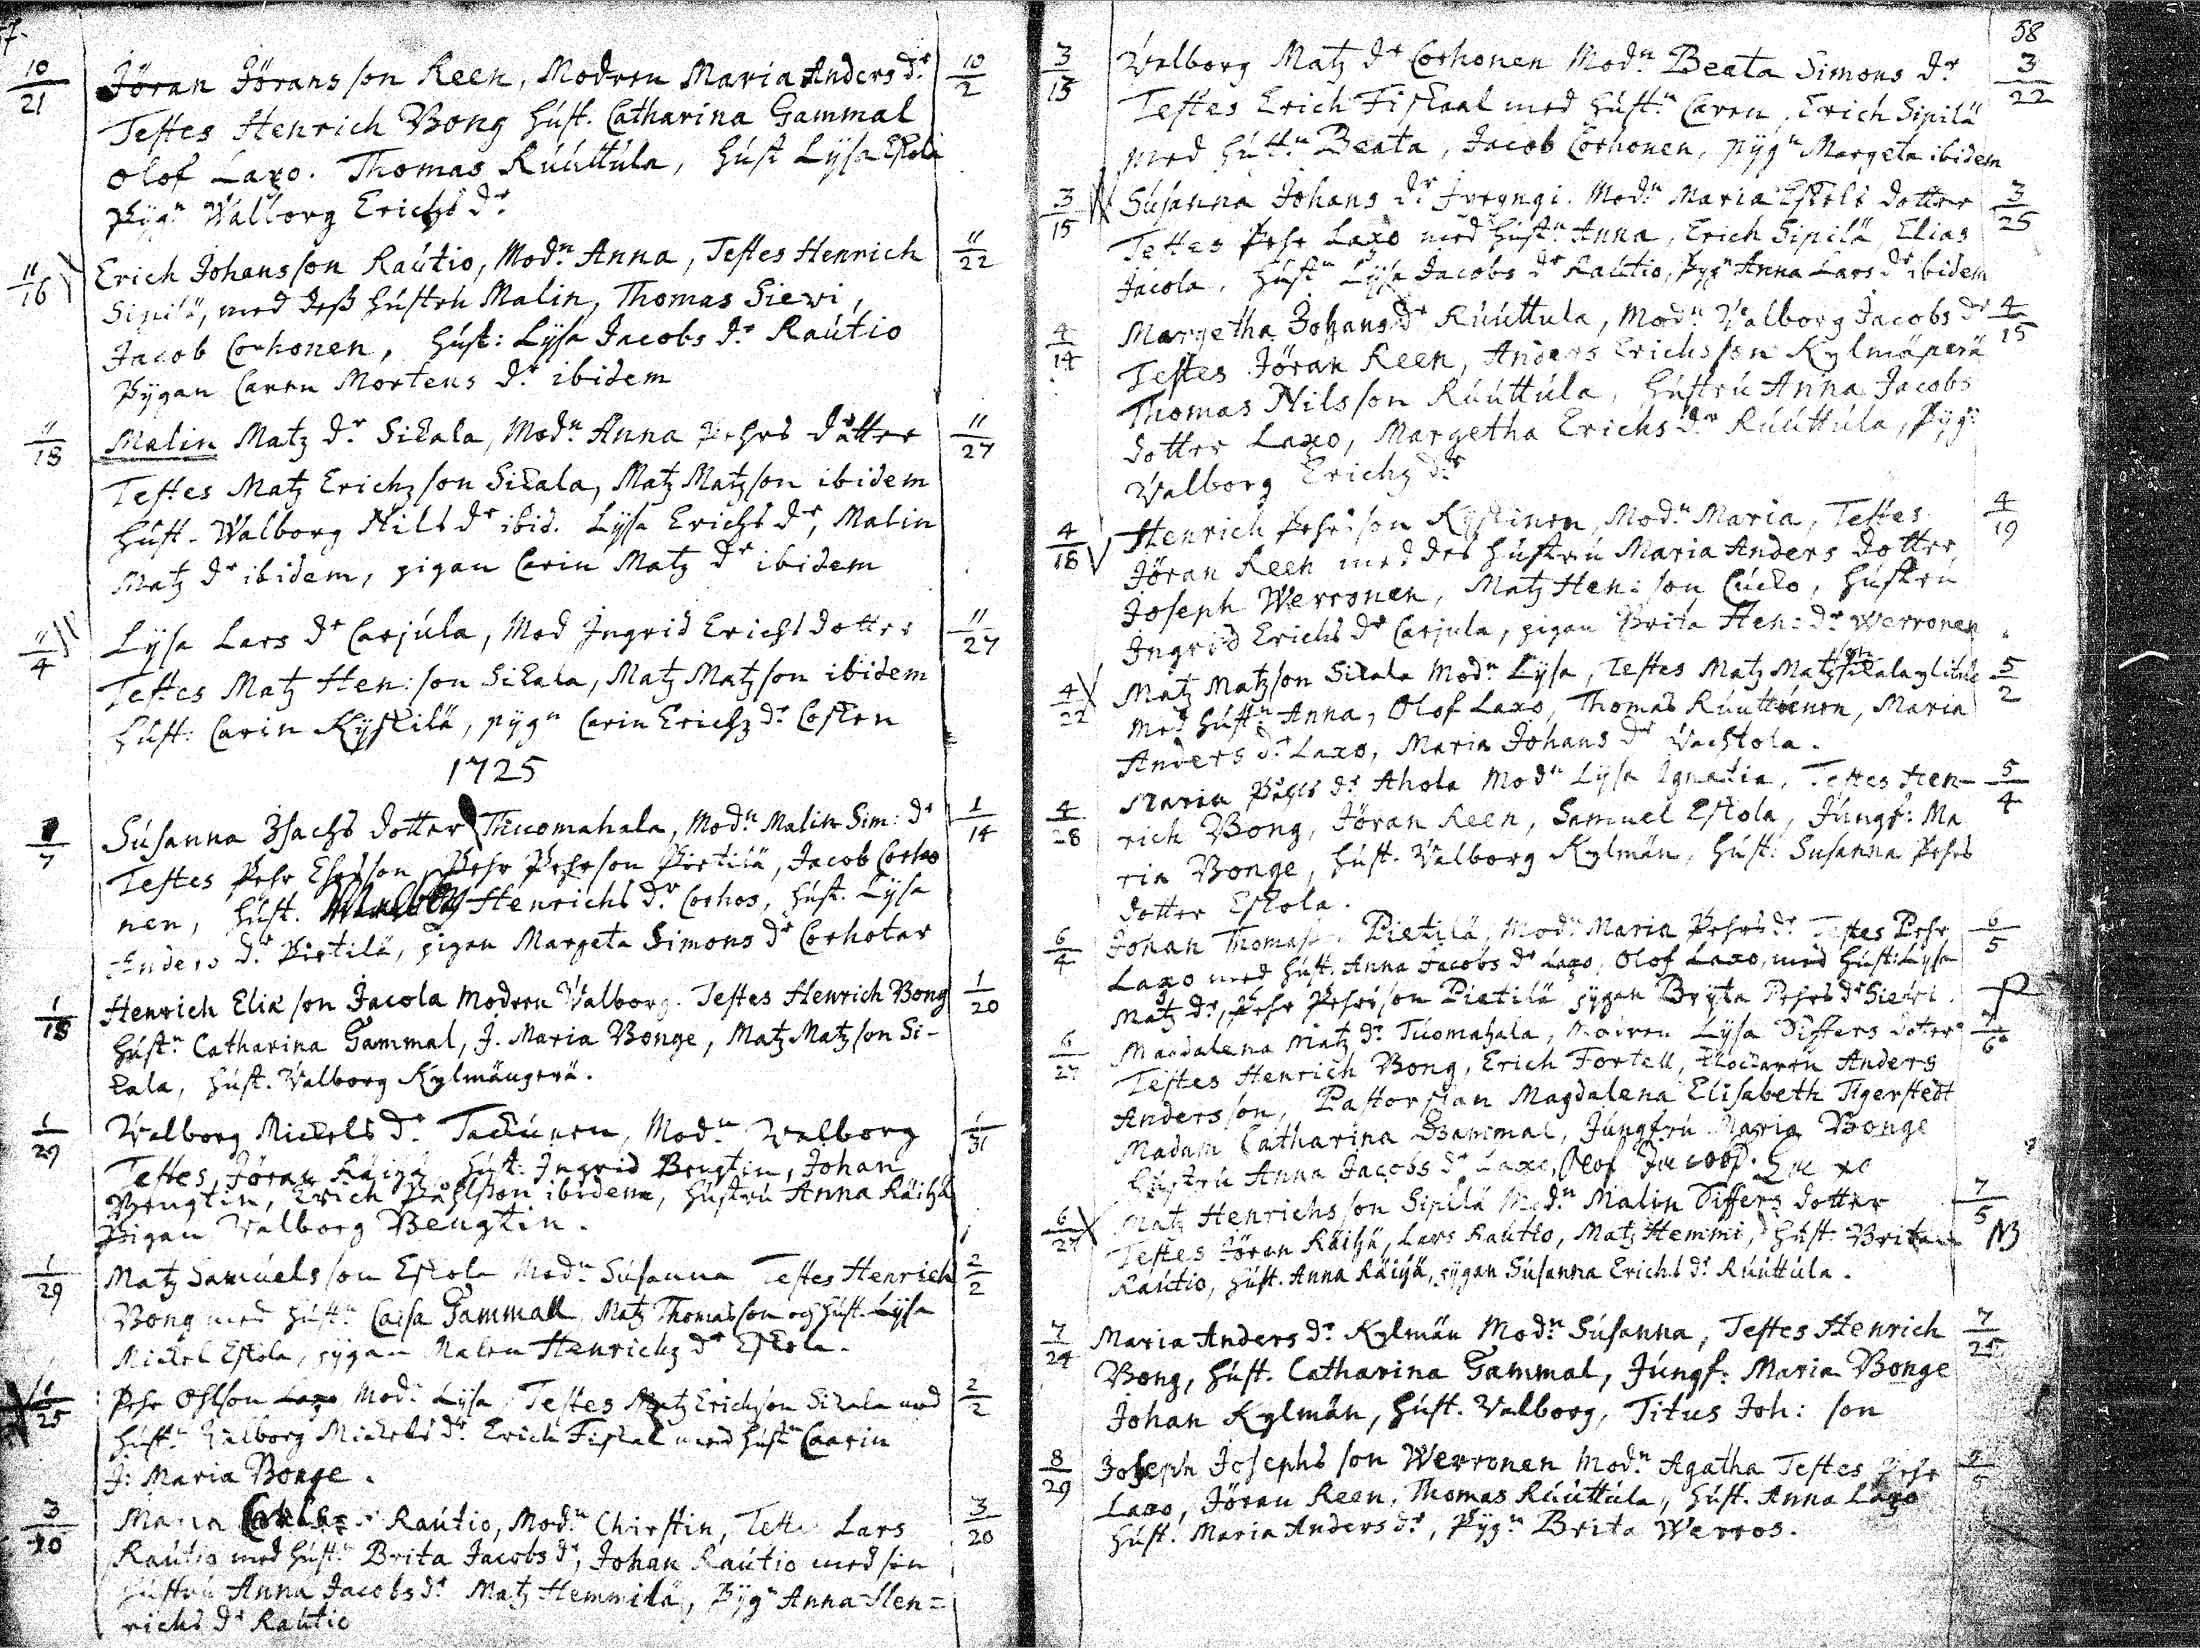 10/21 Jöran Jöransson Reen, Modren Maria Anders dr 10/2
Testes Henrich Bong Hust. Catharina Gammal
Olof Laxo. Thomas Ruuttula, Hust Lysa Eskola
Pygn Valborg Erichs dr
11/16 Erich Johansson Rautio, Modn Anna, Testes Henrich 11/22
Sipilä, med deß hustru Malin, Thomas Siewi,
Jacob Corhonen, Hust: Lysa Jacobs dr Rautio
Pygan Caren Mortens dr ibidem
11/18 Malin Matz dr Sikala, Modn Anna Pehrs dotter 11/27
Testes Matz Erichzson Sikala, Matz Matzson ibidem
Hust. Walborg Nils dr ibid. Lysa Erichs dr, Malin
Matz dr ibidem, pigan Carin Matz dr ibidem
11/4 Lysa Lars dr Carjula, Mod Ingrid Erichs dotter 11/27
Testes Matz Hen: son Sikala, Matz Matzson ibidem
Hust: Carin Kyskilä, pygn Carin Erichz dr Cosken
1725
7 Susanna Isachs dotter Tuomahala, Modn Malin Sim: dr 1/14
Testes Pehr Ehrsson, Pehr Pehrson Pietilä, Jacob Corho
nen, Hust. Henrichs dr Corhos, Hust. Lysa
Anders dr Pietilä, pigan Margeta Simons dr Corhotar
1/18 Henrich Eliæ son Jacola Modren Valborg. Testes Henrich Bong 1/20
Hustn Catharina Gammal, J. Maria Bonge, Matz Matzson Si-
kala, Hust. Valborg Kylmänperä.
1/29 Valborg Mickels dr Tackunen, Modn Valborg 1/31
Testes, Jöran Räihä, Hust: Ingrid Bengtin, Johan
Bengtin, Erich Påhlsson ibidem, Hustru Anna Räihä
Pigan Valborg Bengtin.
1/29 Matz Samuelsson Eskola Modn Susanna Testes Henrich 2/2
Bong med Hustn Caisa Gammall, Matz Thomasson och Hust. Lysa
Mickel Eskola, pygan Malen Henrichz dr Eskola.
1/25 Pehr Ohlson Laxo Modn Lysa, Testes Matz Erichson Sikala med 2/2
Hustn Valborg Mickels dr Erich Fiskal med Hustn Caarin
J: Maria Bonge.
3/10 Maria Rautio, Modn Chirstin, Testes Lars 3/20
Rautio med Hustn Brita Jacobs dr, Johan Rautio med sin
Hustru Anna Jacobs dr Matz Hemmilä, Pygn Anna Hen=
richs dr Rautio
58
3/15 Valborg Matz dr Corhonen Modn Beata Simons dr 3/22
Testes Erich Fiskaal med Hustn Caren, Erich Sipilä
med Hustn Beata, Jacob Corhonen, pygn Margeta ibidem
3/15 Susanna Johans dr Modn Maria Eskels dotter 3/25
Testes Pehr Laxo med Hustn Anna, Erich Sipilä, Elias
Jacola, Hustn Lysa Jacobs dr Rautio, Pygn Anna Lars dr ibidem
4/14 Margetha Johans dr Ruuttula, Modn Valborg Jacobs dr 4/15
Testes Jöran Reen, Anders Erichsson Kylmäperä
Thomas Nilsson Ruuttula, Hustru Anna Jacobs
dotter Laxo, Margetha Erichs dr Ruuttula, Pygn
Valborg Erichz dr
4/18 Henrich Pehrsson Kyskinen, Modn Maria, Testes 4/19
Jöran Reen med des hustru Maria Anders dotter
Joseph Werronen, Matz Hen: son Cucko, Hustru
Ingrid Erichs dr Carjula, pigan Brita Hen: dr Werronen
4/22 Matz Matzson Sikala Modn Lysa, Testes Matz Matzson Sikala 5/2
med Hustn Anna, Olof Laxo, Thomas Ruuttuinen, Maria
Anders dr Laxo, Maria Johans dr Vachtola.
4/28 Maria Påhls dr Ahola Modn Lysa Ignatia, Testes Hen- 5/4
rich Bong, Jöran Reen, Samuel Eskola, Jungf: Ma
ria Bonge, Hust. Valborg Kylmän, Hust: Susanna Pehrs
dotter Eskola.
6/4 Johan Thomass Pietilä, Modn Maria Pehrs dr Testes Pehr 6/5
Laxo med Hust. Anna Jacobs dr Laxo, Olof Laxo, med Hust: Lysa
Matz dr, Pehr Pehrsson Pietilä pygan Bryta Pehrs dr Siewi.
6/27 Magdalena Matz dr Tuomahala, Modren Lysa Siffers doter
Testes Henrich Bong, Erich Fortell, Klockaren Anders
Andersson, Pastorskan Magdalena Elisabeth Tigerstedt
Madam Catharina Gammal, Jungfru Maria Bonge
Hustru Anna Jacobs dr Laxo, Olof Jacobs. Laxo
6/27 Matz Henrichsson Sipilä Modn Malin Siffers dotter 7/5
Testes Jöran Räihä, Lars Rautio, Matz Hemmi, Hust. Brita NB
Rautio, Hust. Anna Räihä, pygan Susanna Erichs dr Ruuttula.
7/24 Maria Anders dr Kylmän Modn Susanna, Testes Henrich 7/25
Bong, Hust. Catharina Gammal, Jungf: Maria Bonge
Johan Kylmän, Hust. Valborg, Titus Joh: son
8/29 Joseph Josephs son Werronen Modn Agatha Testes Pehr 9/5
Laxo, Jöran Reen, Thomas Ruuttula, Hust. Anna Laxo
Hust. Maria Anders dr, Pygn Brita Werros.